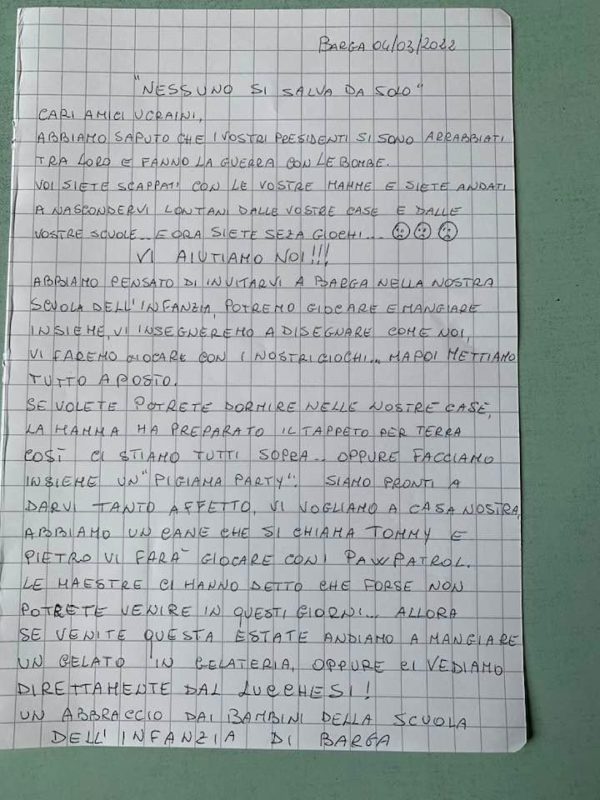 BARGA 04/03/2022
"NESSUNO SI SALVA DA SOLO"
CARI AMICI UCRAINI,
ABBIAMO SAPUTO CHE I VOSTRI PRESIDENTI SI SONO ARRABBIATI
TRA LORO E FANNO LA GUERRA CON LE BOMBE.
VOI SIETE SCAPPATI CON LE VOSTRE MAMME E SIETE ANDATI
A NASCONDERVI LONTANI DALLE VOSTRE CASE E DALLE
VOSTRE SCUOLE... E ORA SIETE SEZA GIOCHI... ☹☹☹
VI AIUTIAMO NOI!!!
ABBIAMO PENSATO DI INVITARVI A BARGA NELLA NOSTRA
SCUOLA DELL'INFANZIA, POTREMO GIOCARE E MANGIARE
INSIEME, VI INSEGNEREMO A DISEGNARE COME NOI,
VI FAREMO GIOCARE CON I NOSTRI GIOCHI... MA POI METTIAMO
TUTTO A POSTO.
SE VOLETE POTRETE DORMIRE NELLE NOSTRE CASE,
LA MAMMA HA PREPARATO IL TAPPETO PER TERRA
COSÌ CI STIAMO TUTTI SOPRA... OPPURE FACCIAMO
INSIEME UN "PIGIAMA PARTY". SIAMO PRONTI A
DARVI TANTO AFFETTO, VI VOGLIAMO A CASA NOSTRA,
ABBIAMO UN CANE CHE SI CHIAMA TOMMY E
PIETRO VI FARÀ GIOCARE CON I PAWPATROL.
LE MAESTRE CI HANNO DETTO CHE FORSE NON
POTRETE VENIRE IN QUESTI GIORNI... ALLORA
SE VENITE QUESTA ESTATE ANDIAMO A MANGIARE
UN GELATO IN GELATERIA, OPPURE CI VEDIAMO
DIRETTAMENTE DAL LUCCHESI!
UN ABBRACCIO DAI BAMBINI DELLA SCUOLA
DELL'INFANZIA DI BARGA